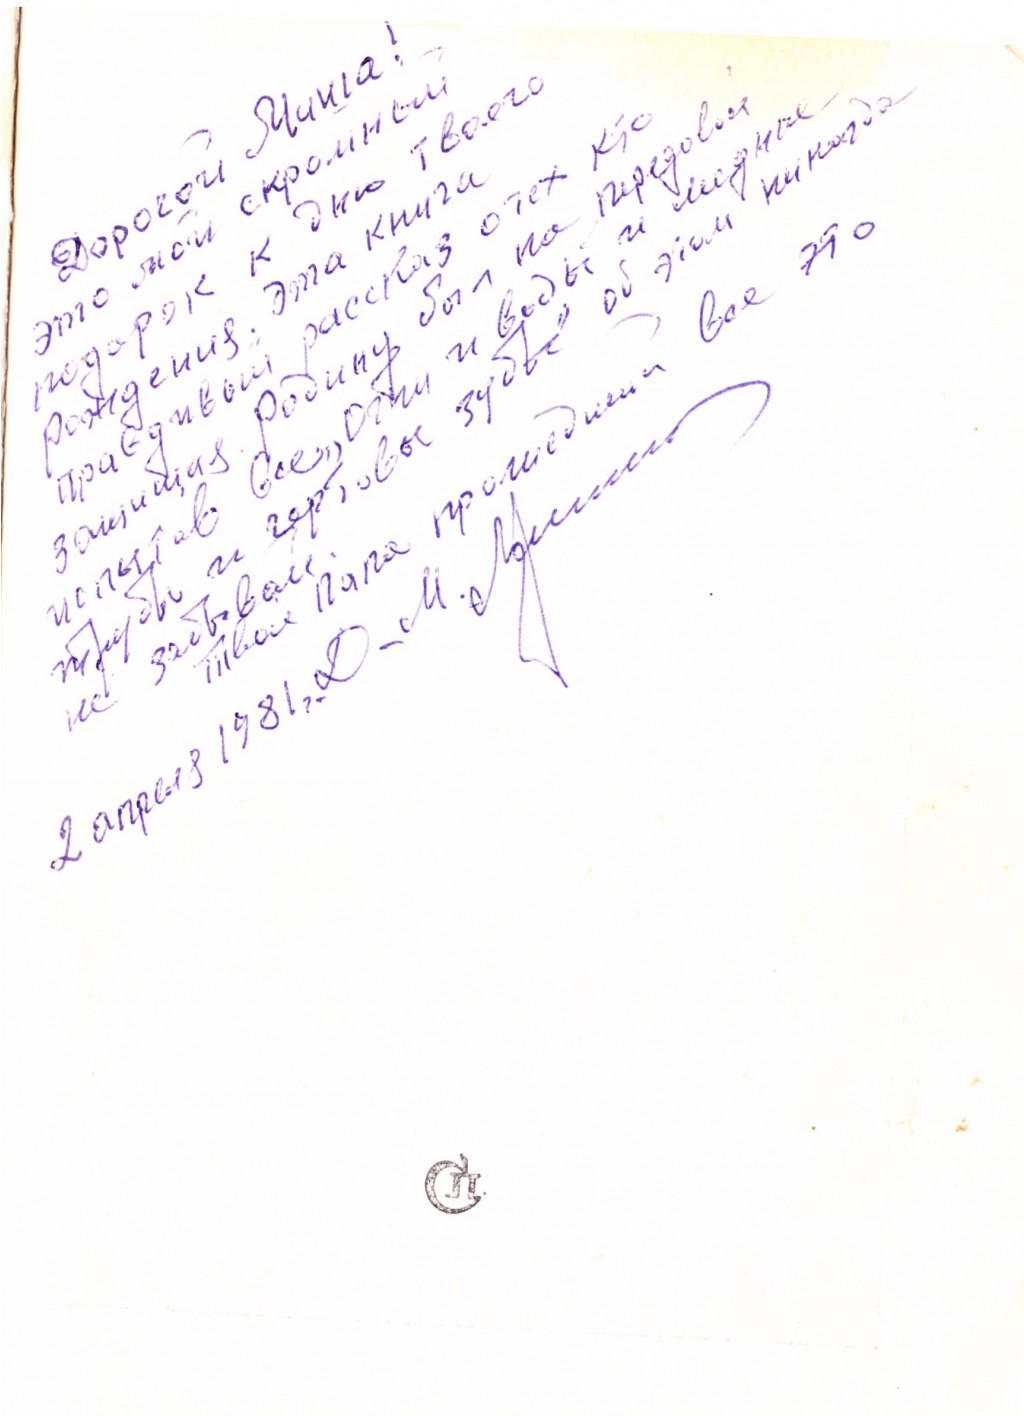 Дорогой Миша!
это мой скромный
подарок к дню твоего
рождения. Эта книга
правдивый рассказ о тех кто
защищая Родину был на передовой
испытав все „Огни и воды и медные
трубы и чертовы зубы" об этом никогда
не забывай.
твой папа прошедший все это
2 апреля 1981 г. Д. М.
СП